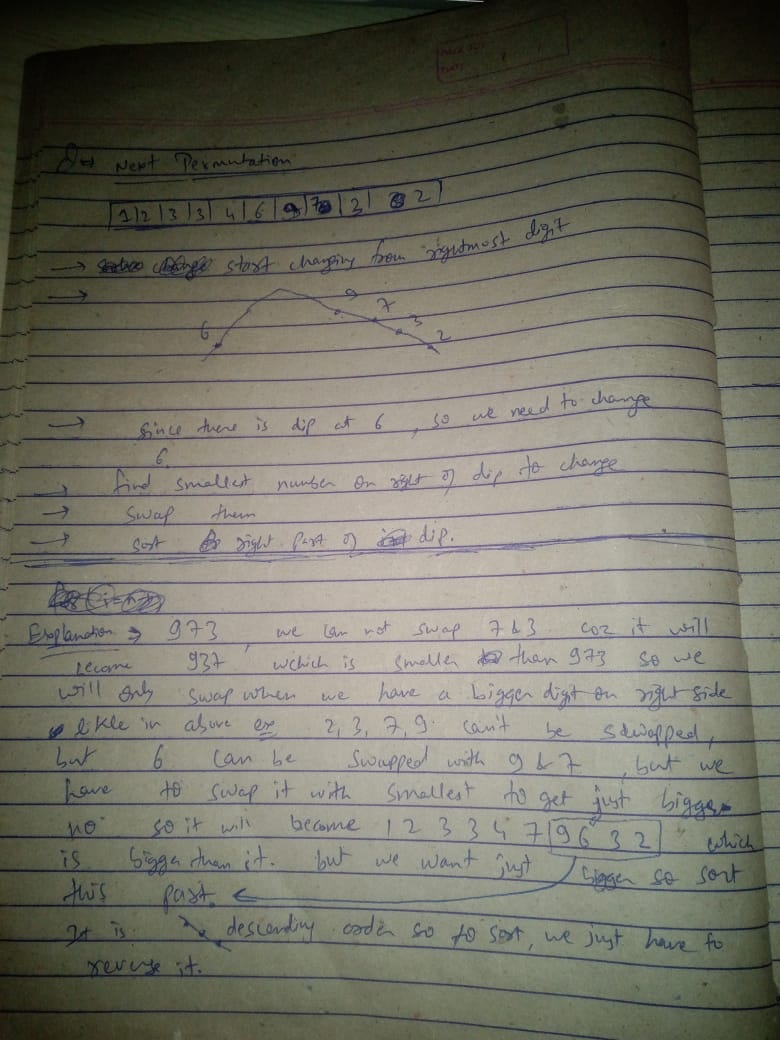 Q → Next Permutation
1 2 3 3 4 6 9 7 3 2
→ start changing from rightmost digit
→
6 9 7 3 2
→ since there is dip at 6, so we need to change
6.
→ find smallest number on right of dip to change
→ swap them
→ sort right part of dip.
Explanation → 973, we can not swap 7 & 3 coz it will
become 937 which is smaller than 973 so we
will only swap when we have a bigger digit on right side
likle in above ex 2, 3, 7, 9 can't be swapped,
but 6 can be swapped with 9 & 7, but we
have to swap it with smallest to get just bigger
no so it will become 1 2 3 3 4 7 9 6 3 2 which
is bigger than it. but we want just bigger so sort
this part.
It is descending order so to sort, we just have to
reverse it.